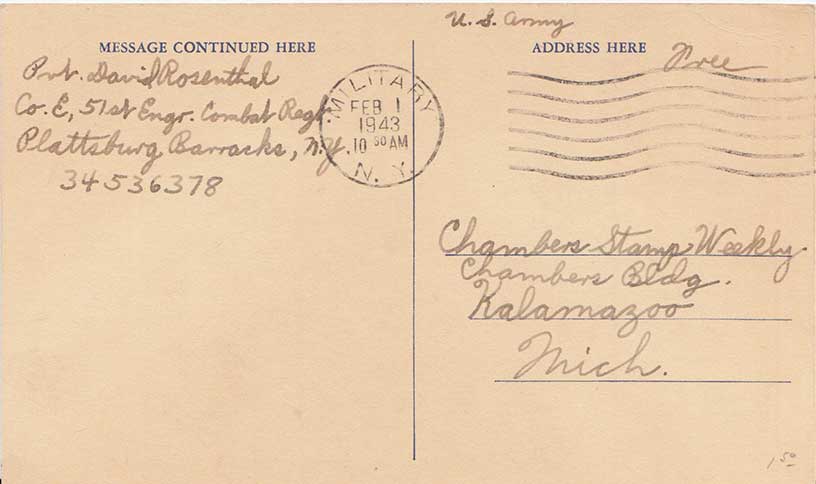 U. S. Army
MESSAGE CONTINUED HERE
Pvt. David Rosenthal
Co. E, 51st Engr. Combat Regt.
Plattsburg Barracks, N.Y.
34536378
MILITARY
FEB 1
1943
10 30 AM
N. Y.
ADDRESS HERE
Free
Chambers Stamp Weekly
Chambers Bldg.
Kalamazoo
Mich.
1 50